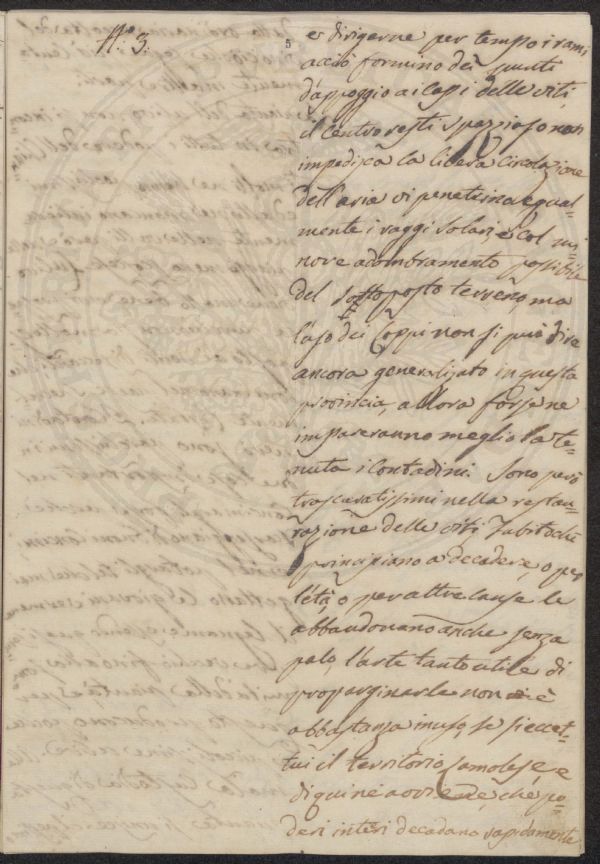 N.° 3.
5
e dirigerne per tempo i rami
acciò formino dei punti
d'appoggio ai Capi delle viti,
il Centro resti spazzioso non
impedisca la libera Circolazione
dell'aria vi penetrino egual-
mente i raggi Solari, e Col mi-
nore adombramento possibile
del sottoposto terreno, ma
l'uso dei Coppi non si può dire
ancora generalizato in questa
provincia, allora forse ne
impareranno meglio la te-
nuta i Contadini. Sono però
trascuratissimi nella restau-
razione delle viti. Subitochè
principiano a decadere, o per
l'età, o per altre cause le
abbandonano anche senza
palo, l'arte tanto utile di
propaginarle non è
abbastanza in uso, se si eccet-
tui il territorio Samolese, e
di qui ne avviene, che po-
deri interi decadano rapidamente